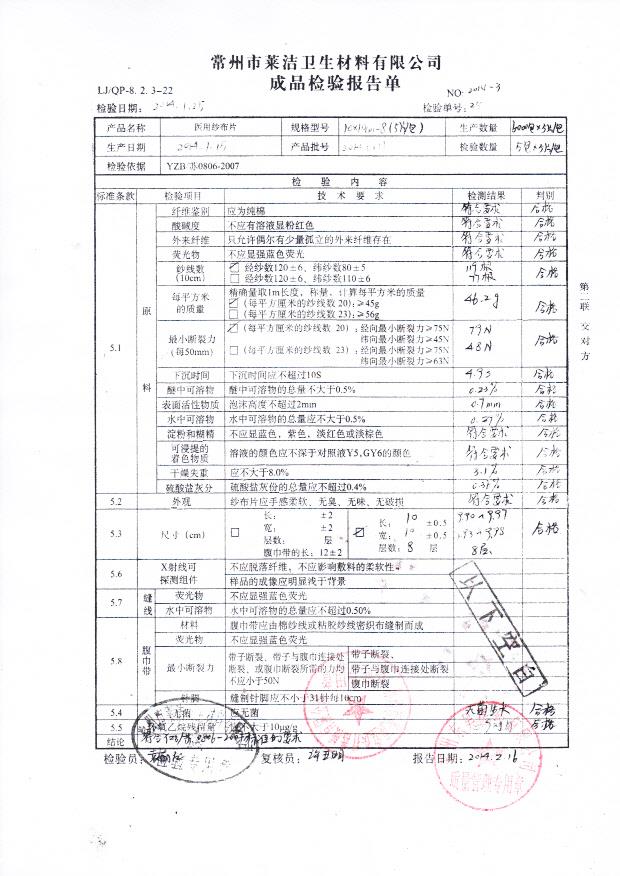 常州市莱洁卫生材料有限公司
成品检验报告单
LJ/QP-8. 2. 3-22
NO: 2014-3
检验日期: 2014.1.25 检验单号: 25
产品名称 医用纱布片 规格型号 10×10cm-8(5片/包) 生产数量
生产日期 2014.1.15 产品批号 检验数量 5包×5片/包
检验依据 YZB/苏0806-2007
检 验 内 容
标准条款 检验项目 技 术 要 求 检测结果 判别
5.1 原料
纤维鉴别 应为纯棉 符合要求 合格
酸碱度 不应有溶液显粉红色 符合要求 合格
外来纤维 只允许偶尔有少量孤立的外来纤维存在 符合要求 合格
荧光物 不应显强蓝色荧光 符合要求 合格
纱线数 (10cm)
☑ 经纱数120±6、纬纱数80±5
□ 经纱数120±6、纬纱数110±6
合格
每平方米的质量
精确量取1m长度，称量，计算每平方米的质量
☑ (每平方厘米的纱线数 20)：≥45g
□ (每平方厘米的纱线数 23)：≥56g
46.2g 合格
最小断裂力 (每50mm)
☑ (每平方厘米的纱线数 20) ：经向最小断裂力≥75N 79N
纬向最小断裂力≥45N
□ (每平方厘米的纱线数 23) ：经向最小断裂力≥75N 48N 合格
纬向最小断裂力≥63N
下沉时间 下沉时间应不超过10S 4.9S 合格
醚中可溶物 醚中可溶物的总量不大于0.5% 0.23% 合格
表面活性物质 泡沫高度不超过2min 0.7mm 合格
水中可溶物 水中可溶物的总量应不大于0.5% 0.27% 合格
淀粉和糊精 不应显蓝色，紫色，淡红色或淡棕色 符合要求 合格
可浸提的着色物质 溶液的颜色应不深于对照液Y5,GY6的颜色 符合要求 合格
干燥失重 应不大于8.0% 3.1% 合格
硫酸盐灰分 硫酸盐灰份的总量应不超过0.4% 合格
5.2 外观 纱布片应手感柔软、无臭、无味、无破损 符合要求 合格
5.3 尺寸 (cm)
□ 长： ±2 ☑ 长： 10 ±0.5 9.90~9.97
宽： ±2 宽： 10 ±0.5 合格
层数： 层 层数： 8 层 8层
腹巾带的长：12±2
5.6 X射线可探测组件
不应脱落纤维，不应影响敷料的柔软性。
样品的成像应明显浅于背景
5.7 缝线
荧光物 不应显强蓝色荧光
水中可溶物 水中可溶物的总量应不超过0.50%
5.8 腹巾带
材料 腹巾带应由棉纱线或粘胶纱线密织布缝制而成
荧光物 不应显强蓝色荧光
最小断裂力
带子断裂、带子与腹巾连接处断裂、或腹巾断裂所需的力均不应小于50N
带子断裂
带子与腹巾连接处断裂
腹巾断裂
针脚 缝制针脚应不小于31针每10cm
以下空白
5.4 无菌 应无菌 无菌生长 合格
5.5 环氧乙烷残留量 大于10μg/g 合格
结论
检验员: 复核员: 报告日期: 2014.2.16
质量管理专用章
第二联 交对方